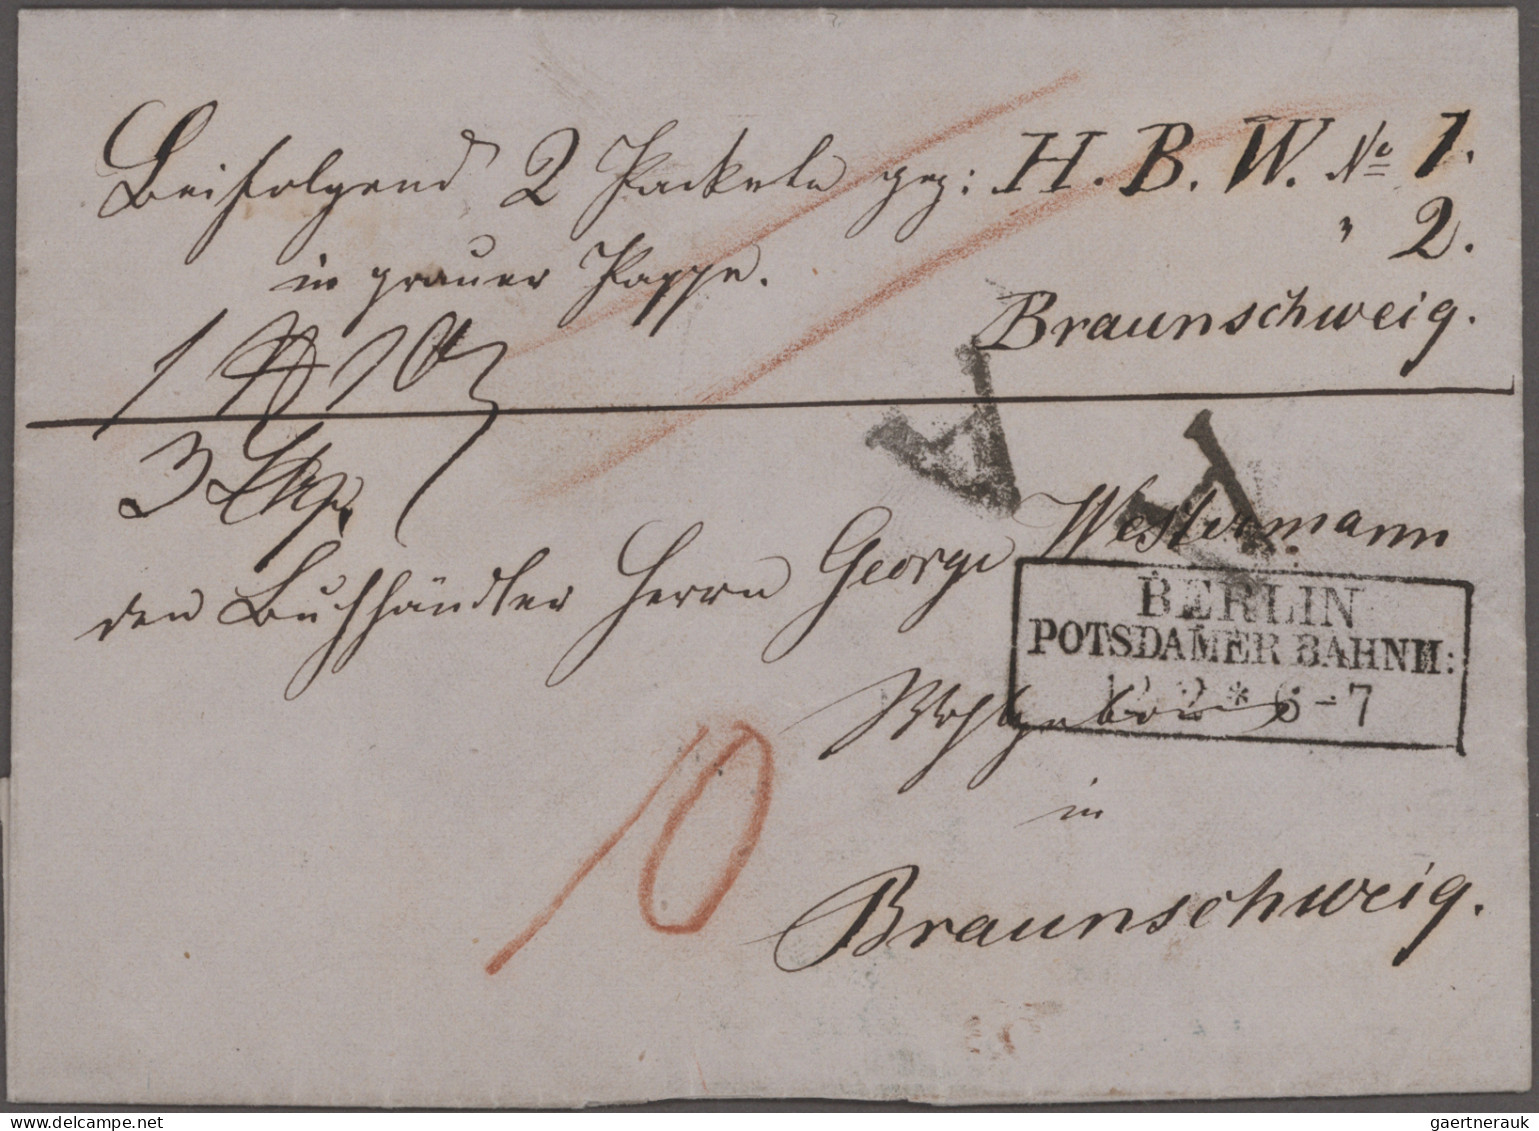 Beifolgend 2 Packete gez: H. B. W. No 1.
" 2.
in grauer Pappe.
Braunschweig.
1 10
3
den Buchhändler Herrn George Westermann
BERLIN
POTSDAMER BAHNH:
12 2 * 6-7
Wohlgeboren
in
10
Braunschweig.
gaertnerauk.com